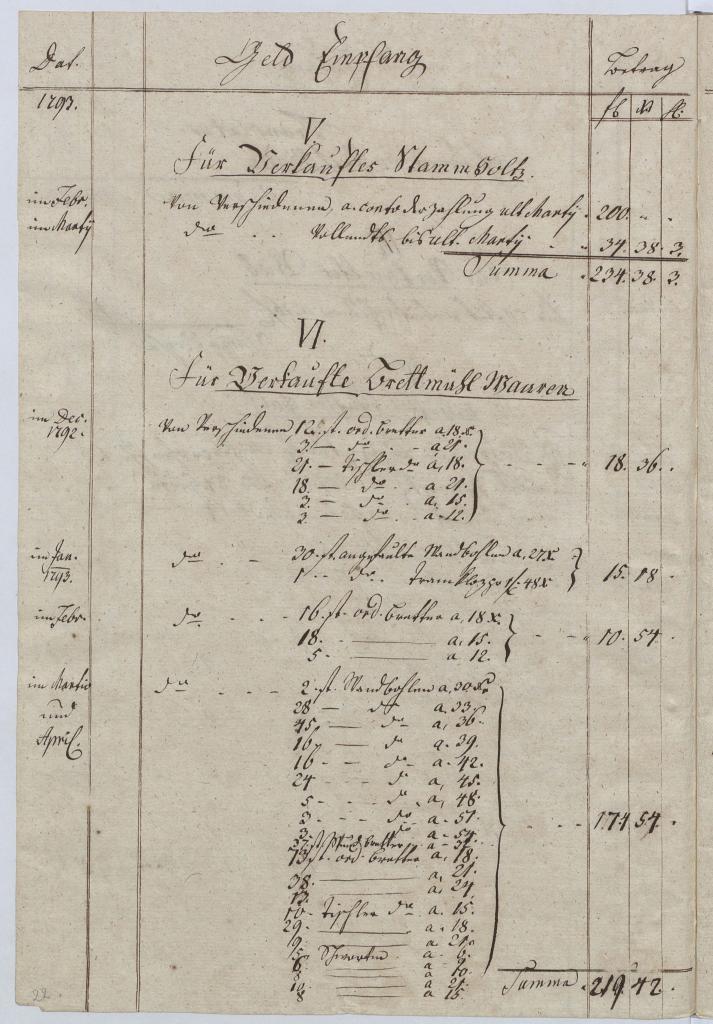 Dat. Geld Empfang Betrag
1793. fl xr
V.
Für Verkauftes Stammholtz.
im Febr. Von Verschiedenen, a conto der Zahlung ult. Martij 200. " .
im Martij do . . Vollends bis ult. Martij - " 34. 38. 3.
Summa 234. 38. 3.
VI.
Für Verkaufte Brettmühl Waaren
im Dec. 1792. Von Verschiedenen, 12 st. ord. bretter a, 18 x.
3. — do - a 21.
21. — Tischler do a, 18. - - - " 18. 36. .
18. — do . a 21.
2. — do . a. 15.
2. — do . a 12.
im Jan. 1793. do . - 30 st. angefaulte Wandbohlen a, 27 x
1 - - do . 48 x 15. 18 .
im Febr. do . - - 16. st. ord. bretter a, 18 x.
18. - — a, 15. - - " 10. 54. .
5 - — a 12.
im Martio und April. do - - - 2. st. Wandbohlen a, 30 x.
28 — do a. 33.
45, — do a, 36.
16, — do a. 39.
16 - - do a. 42.
24 - - do a, 45.
5 - - do a, 48
3 - - do a. 51. - - - 174 54. .
3. do a - 54.
13 st. ord. bretter a, 18.
38. — a, 21.
13. — a, 24.
10 - Tischler do a. 15.
29. — a. 18.
9. — a 21.
15 Schwarten a 6.
6 — a 9.
8 — a 10.
10 — a 21.
8 — a 15.
Summa " 219. 42. .
22